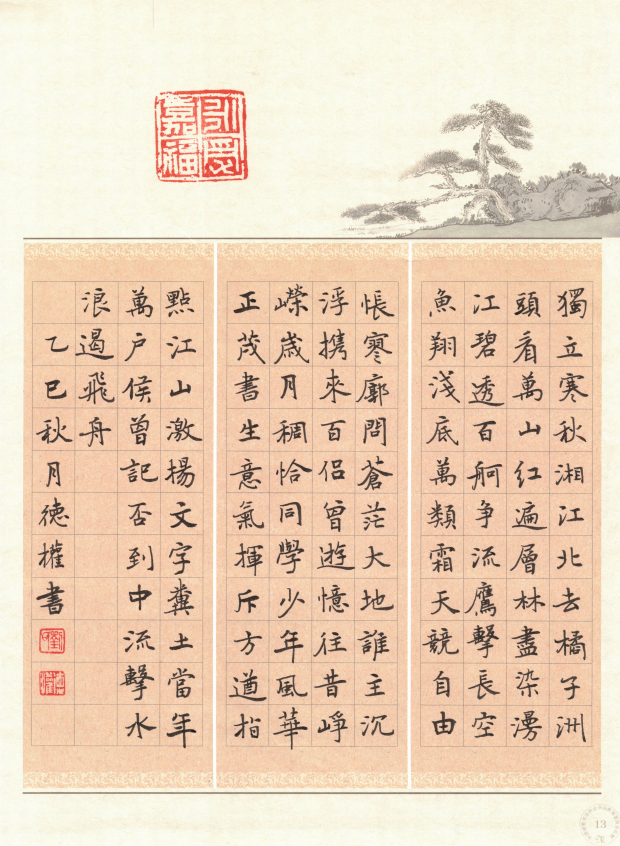 受
嘉福
獨立寒秋湘江北去橘子洲
頭看萬山紅遍層林盡染漫
江碧透百舸争流鷹擊長空
魚翔淺底萬類霜天競自由
悵寥廓問蒼茫大地誰主沉
浮携來百侣曾遊憶往昔崢
嶸歲月稠恰同學少年風華
正茂書生意氣揮斥方遒指
點江山激揚文字糞土當年
萬户侯曾記否到中流擊水
浪遏飛舟
乙巳秋月德權書
13